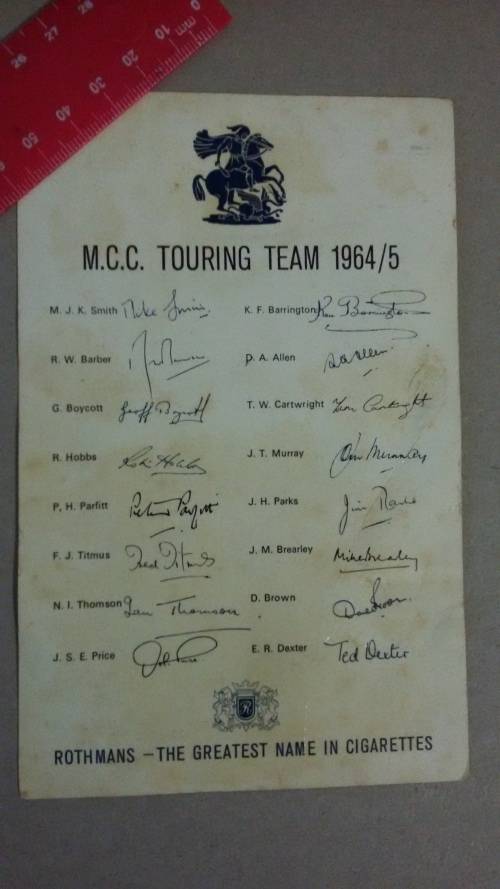 28
27
26
mm 0
10
20
30
40
50
M.C.C. TOURING TEAM 1964/5
M. J. K. Smith Mike Smith K. F. Barrington Ken Barrington
R. W. Barber D. A. Allen D A Allen
G. Boycott Geoff Boycott T. W. Cartwright Tom Cartwright
R. Hobbs Robin Hobbs J. T. Murray John Murray
P. H. Parfitt Peter Parfitt J. H. Parks Jim Parks
F. J. Titmus Fred Titmus J. M. Brearley Mike Brearley
N. I. Thomson Ian Thomson D. Brown
J. S. E. Price John Price E. R. Dexter Ted Dexter
R
ROTHMANS – THE GREATEST NAME IN CIGARETTES